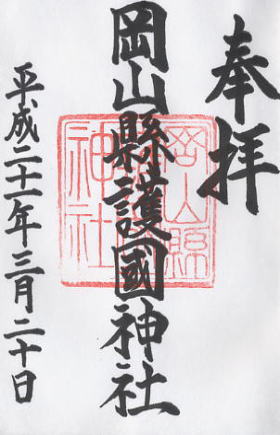 奉拝
岡山縣護國神社
平成二十一年三月二十日
岡山縣護國神社